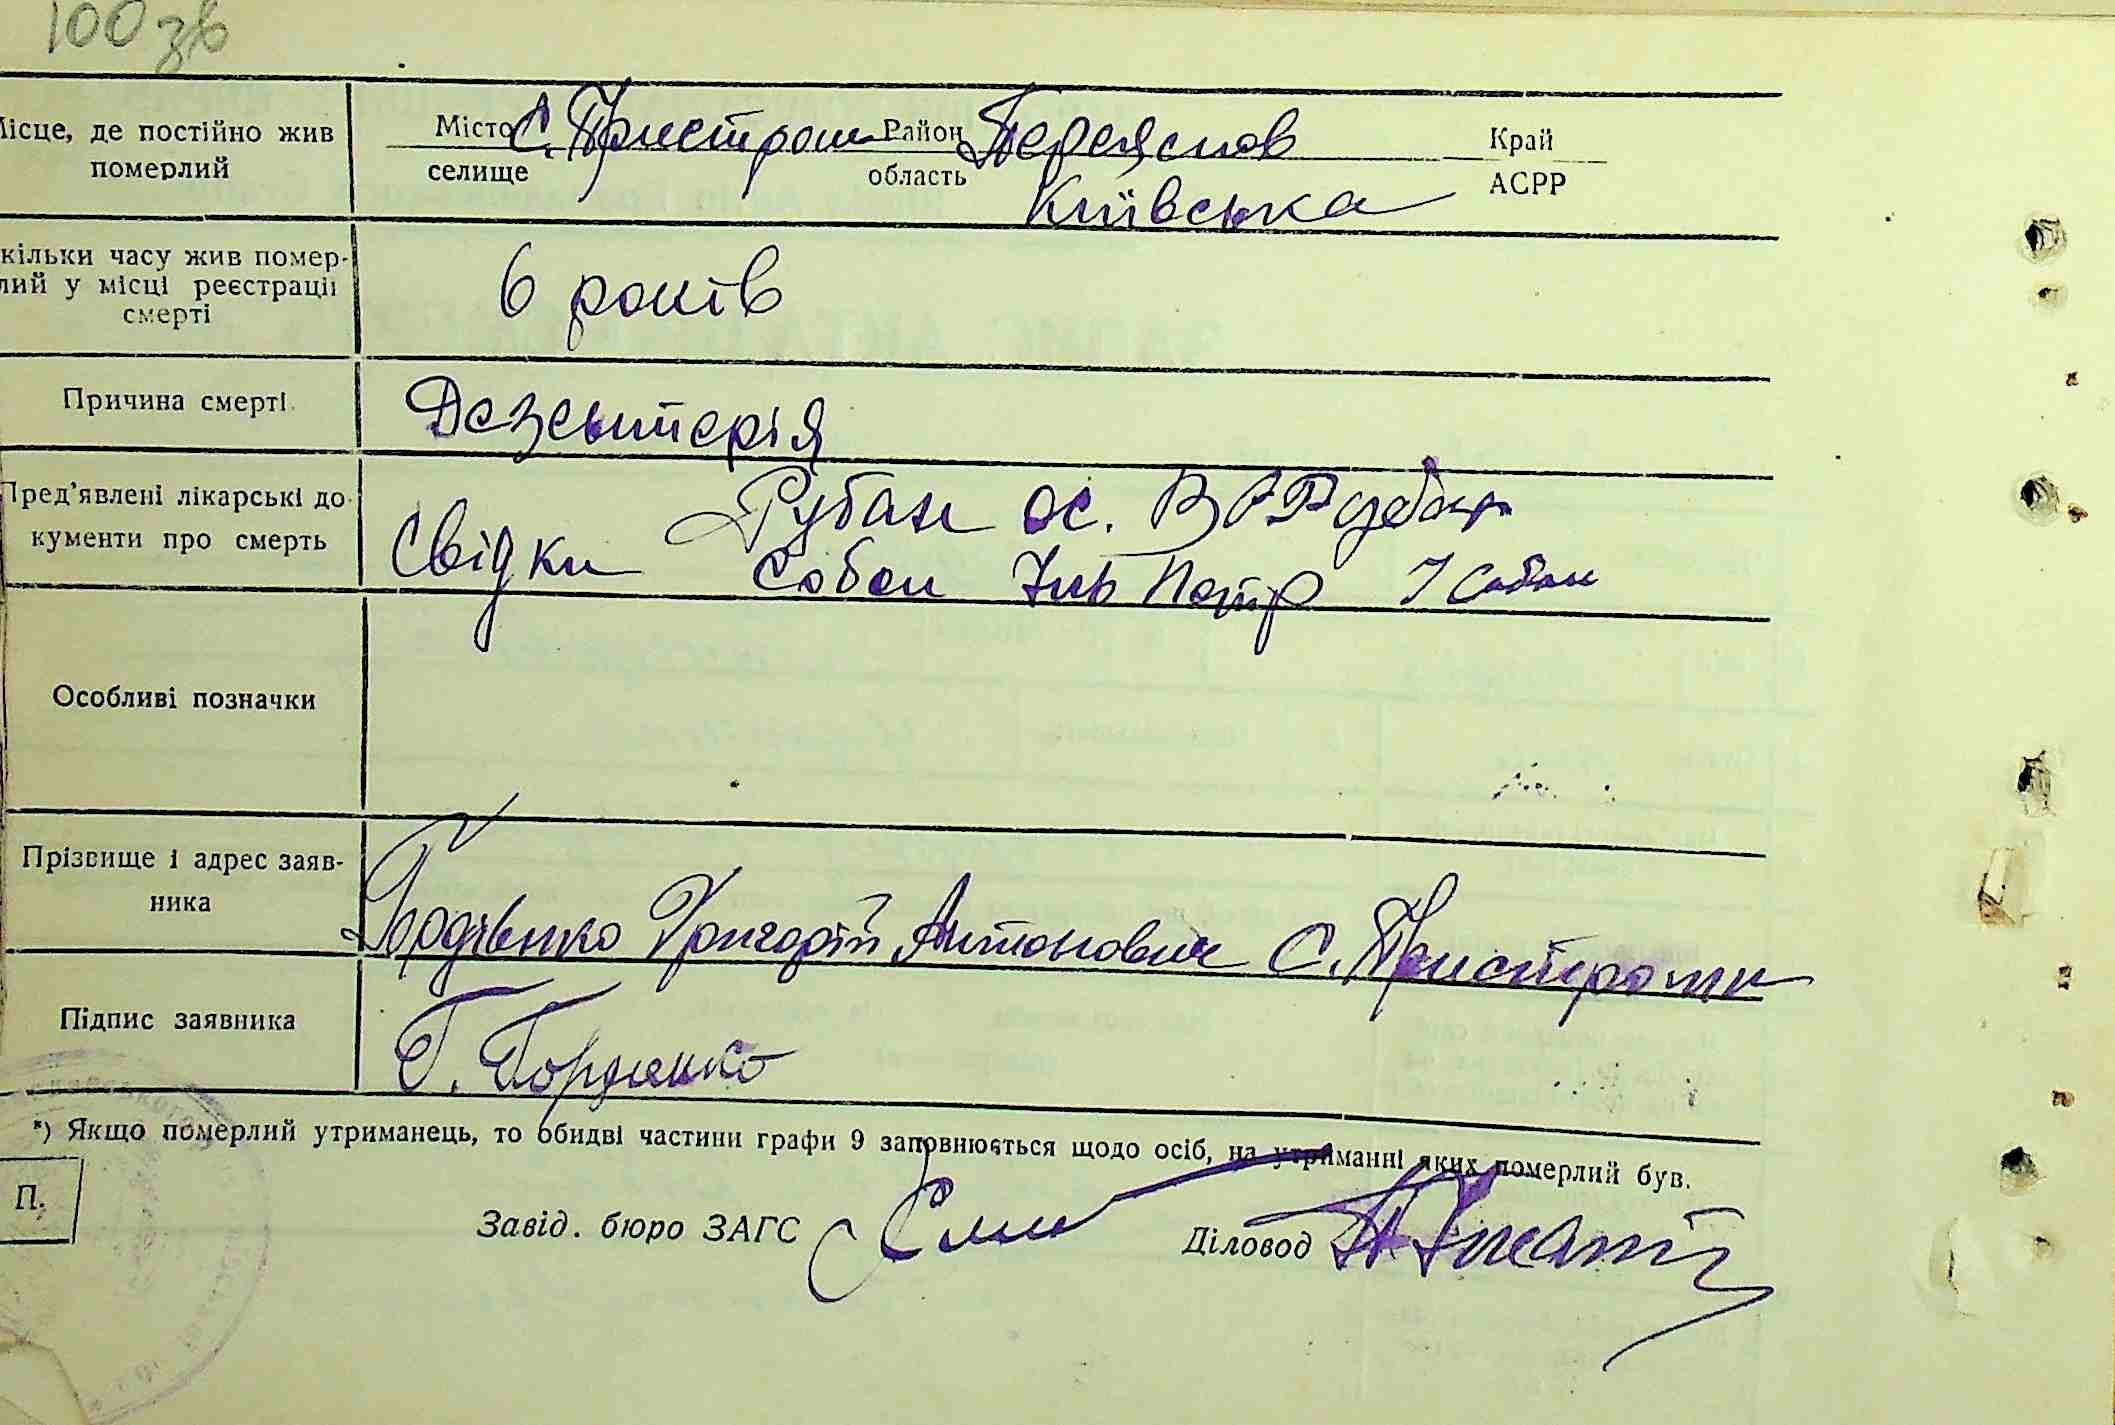 100 зв
Місце, де постійно жив
померлий
Місто С. Пристроми Район Переяслов Край
селище область Київська АСРР
кільки часу жив помер-
лий у місці реєстрації
смерті
6 років
Причина смерті
Дезентерія
Пред'явлені лікарські до-
кументи про смерть
Рубан ос. В Рубан
Свідки Собол Петр Собол
Особливі позначки
Прізвище і адрес заяв-
ника
Гордієнко Григорій Антонович С. Пристроми
Підпис заявника
Г. Гордієнко
*) Якщо померлий утриманець, то обидві частини графи 9 заповнюється щодо осіб, на утриманні яких померлий був.
П.
Завід. бюро ЗАГС
Діловод